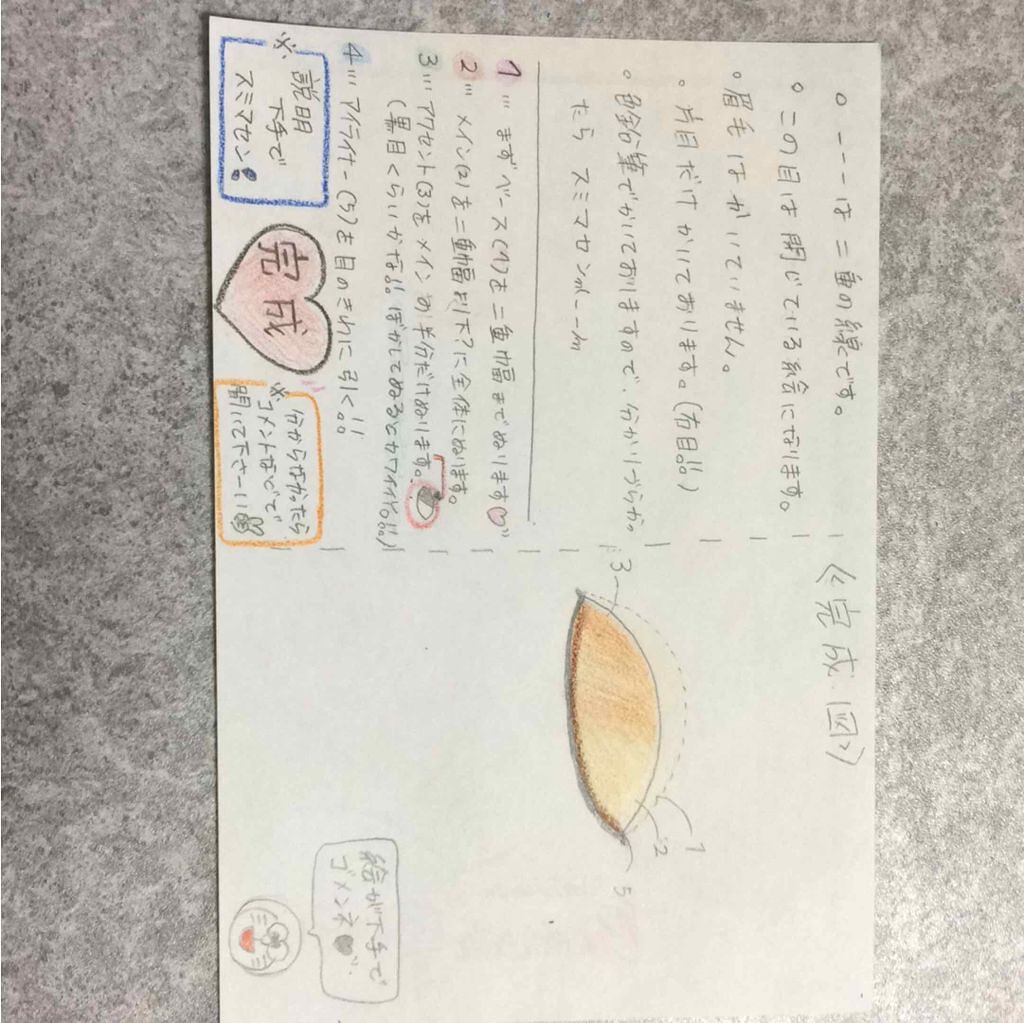 。----は二重の線です。
。この目は閉じている絵になります。
。眉毛はかいていません。
。片目だけかいております。(右目!!)
。鉛筆でかいておりますので、分かりづらか。
たら スミマセンm(--)m
1… まずベース(1)を二重幅までぬります♡"
2… メイン(2)を二重幅以下?に全体にぬります。
3… アクセント(3)をメインの半分だけぬります。
(黒目くらいかな!! ぼかしてぬるとカワイイヤ。!!)
4… アイライナー(5)を目のきわに引く!!。
※説明
下手で
スミマセン!
完成
※分からなかったら
コメントなどで
聞いて下さーい
《完成図》
3
1
2
5
絵が下手で
ゴメンネ